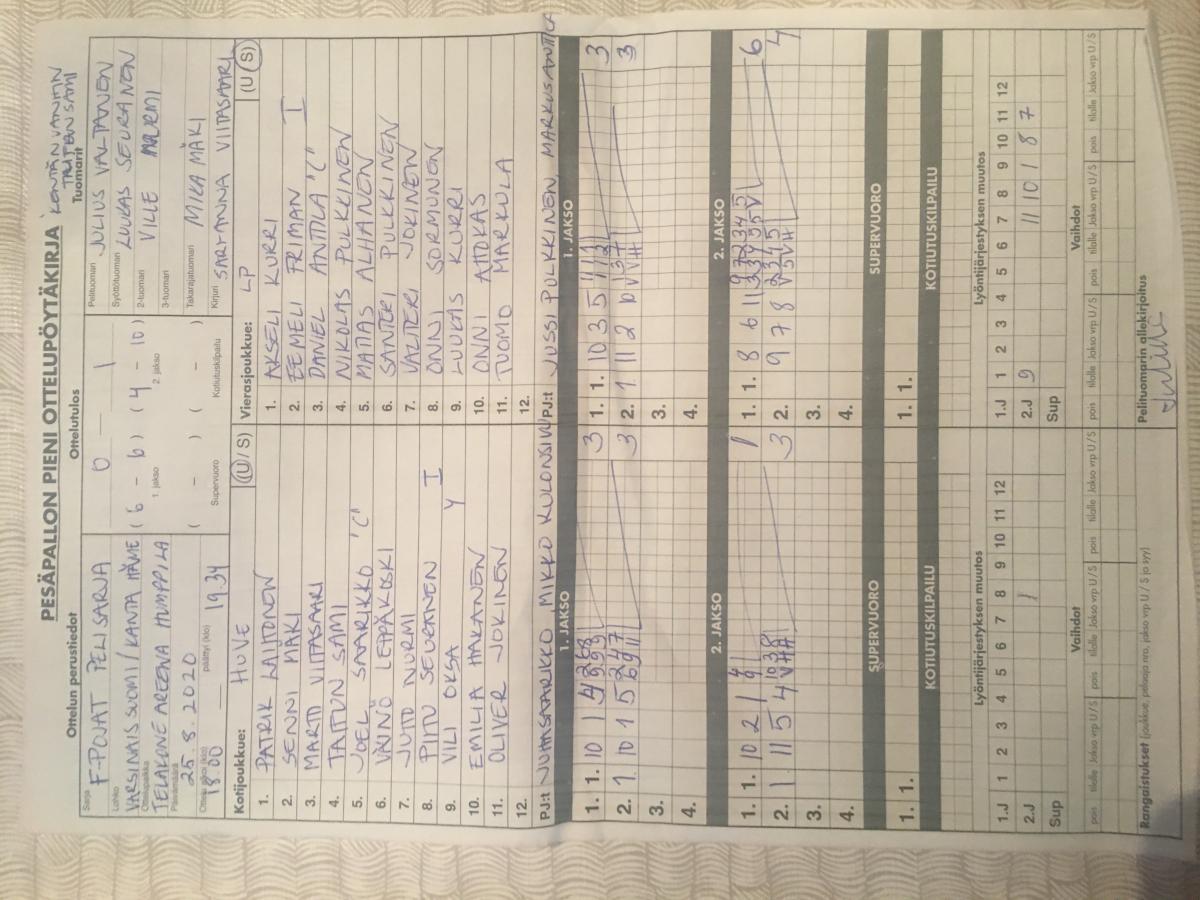 PESÄPALLON PIENI OTTELUPÖYTÄKIRJA
KENTÄN VANHIN
TAITUN SAMI
Ottelun perustiedot
Ottelutulos
Tuomarit
Sarja
F-POJAT PELISARJA
0 — 1
Pelituomari
JULIUS VALTANEN
Lohko
VARSINAIS SUOMI/KANTA HÄME
(6 - 6) (4 - 10)
1. jakso
2. jakso
Syöttötuomari
LUUKAS SEURANEN
Ottelupaikka
TELAKONE AREENA HUMPPILA
2-tuomari
VILLE NURMI
3-tuomari
Päivämäärä
25.8.2020
( - ) ( - )
Supervuoro
Kotiutuskilpailu
Takarajatuomari
MIKA MÄKI
Ottelu alkoi (klo)
18.00
päättyi (klo)
19.34
Kirjuri
SARIANNA VIITASAARI
Kotijoukkue: HUVE (U / S)
Vierasjoukkue: LP (U / S)
1. PATRIK LAITONEN
2. SENNI MÄKI
3. MARTO VIITASAARI
4. TAITUN SAMI
5. JOEL SAARIKKO "C"
6. VÄINÖ LEPPÄKOSKI
7. JUHO NURMI
8. PITU SEURANEN I
9. VILI OKSA Y
10. EMILIA HAKANEN
11. OLIVER JOKINEN
12.
1. AKSELI KURRI
2. EEMELI FRIMAN I
3. DANIEL ANTTILA "C"
4. NIKOLAS PULKKINEN
5. MATIAS ALHAINEN
6. SANTERI PULKKINEN
7. VALTTERI JOKINEN
8. ONNI SORMUNEN
9. LUUKAS KURRI
10. ONNI AHOKAS
11. TUOMO MARKULA
12.
PJ:t JUHA SAARIKKO, MIKKO KULONSIVU
PJ:t JUSSI PULKKINEN, MARKUS ANTTILA
1. JAKSO
1. JAKSO
1. 1. 10 1 3
2. 1 10 1 5 3
3.
4.
1. 1. 10 3 5 3
2. 1 11 2 10 3
3.
4.
2. JAKSO
2. JAKSO
1. 1. 10 2 1 1
2. 1 11 5 4 3
3.
4.
1. 1. 8 6 11 6
2. 9 7 8 4
3.
4.
SUPERVUORO
SUPERVUORO
1. 1.
1. 1.
KOTIUTUSKILPAILU
KOTIUTUSKILPAILU
Lyöntijärjestyksen muutos
Lyöntijärjestyksen muutos
1.J 1 2 3 4 5 6 7 8 9 10 11 12
2.J 1
Sup
1.J 1 2 3 4 5 6 7 8 9 10 11 12
2.J 9 11 10 1 8 7
Sup
Vaihdot
Vaihdot
pois tilalle Jakso vrp U / S pois tilalle Jakso vrp U / S pois tilalle Jakso vrp U / S
pois tilalle Jakso vrp U / S pois tilalle Jakso vrp U / S pois tilalle Jakso vrp U / S
Rangaistukset (joukkue, pelaaja nro, jakso vrp U / S ja syy)
Pelituomarin allekirjoitus